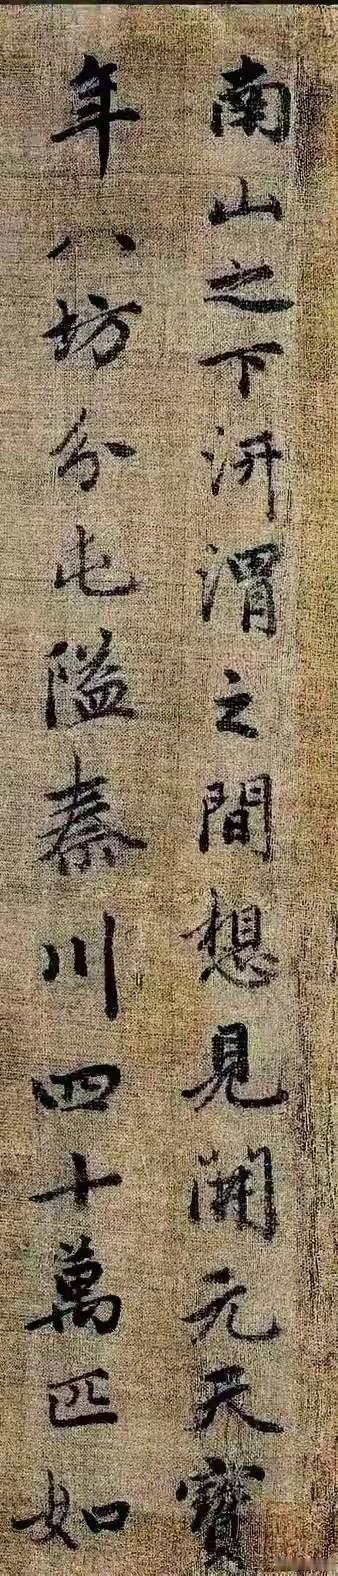 南山之下汧渭之間想見開元天寶
年八坊分屯隘秦川四十萬匹如